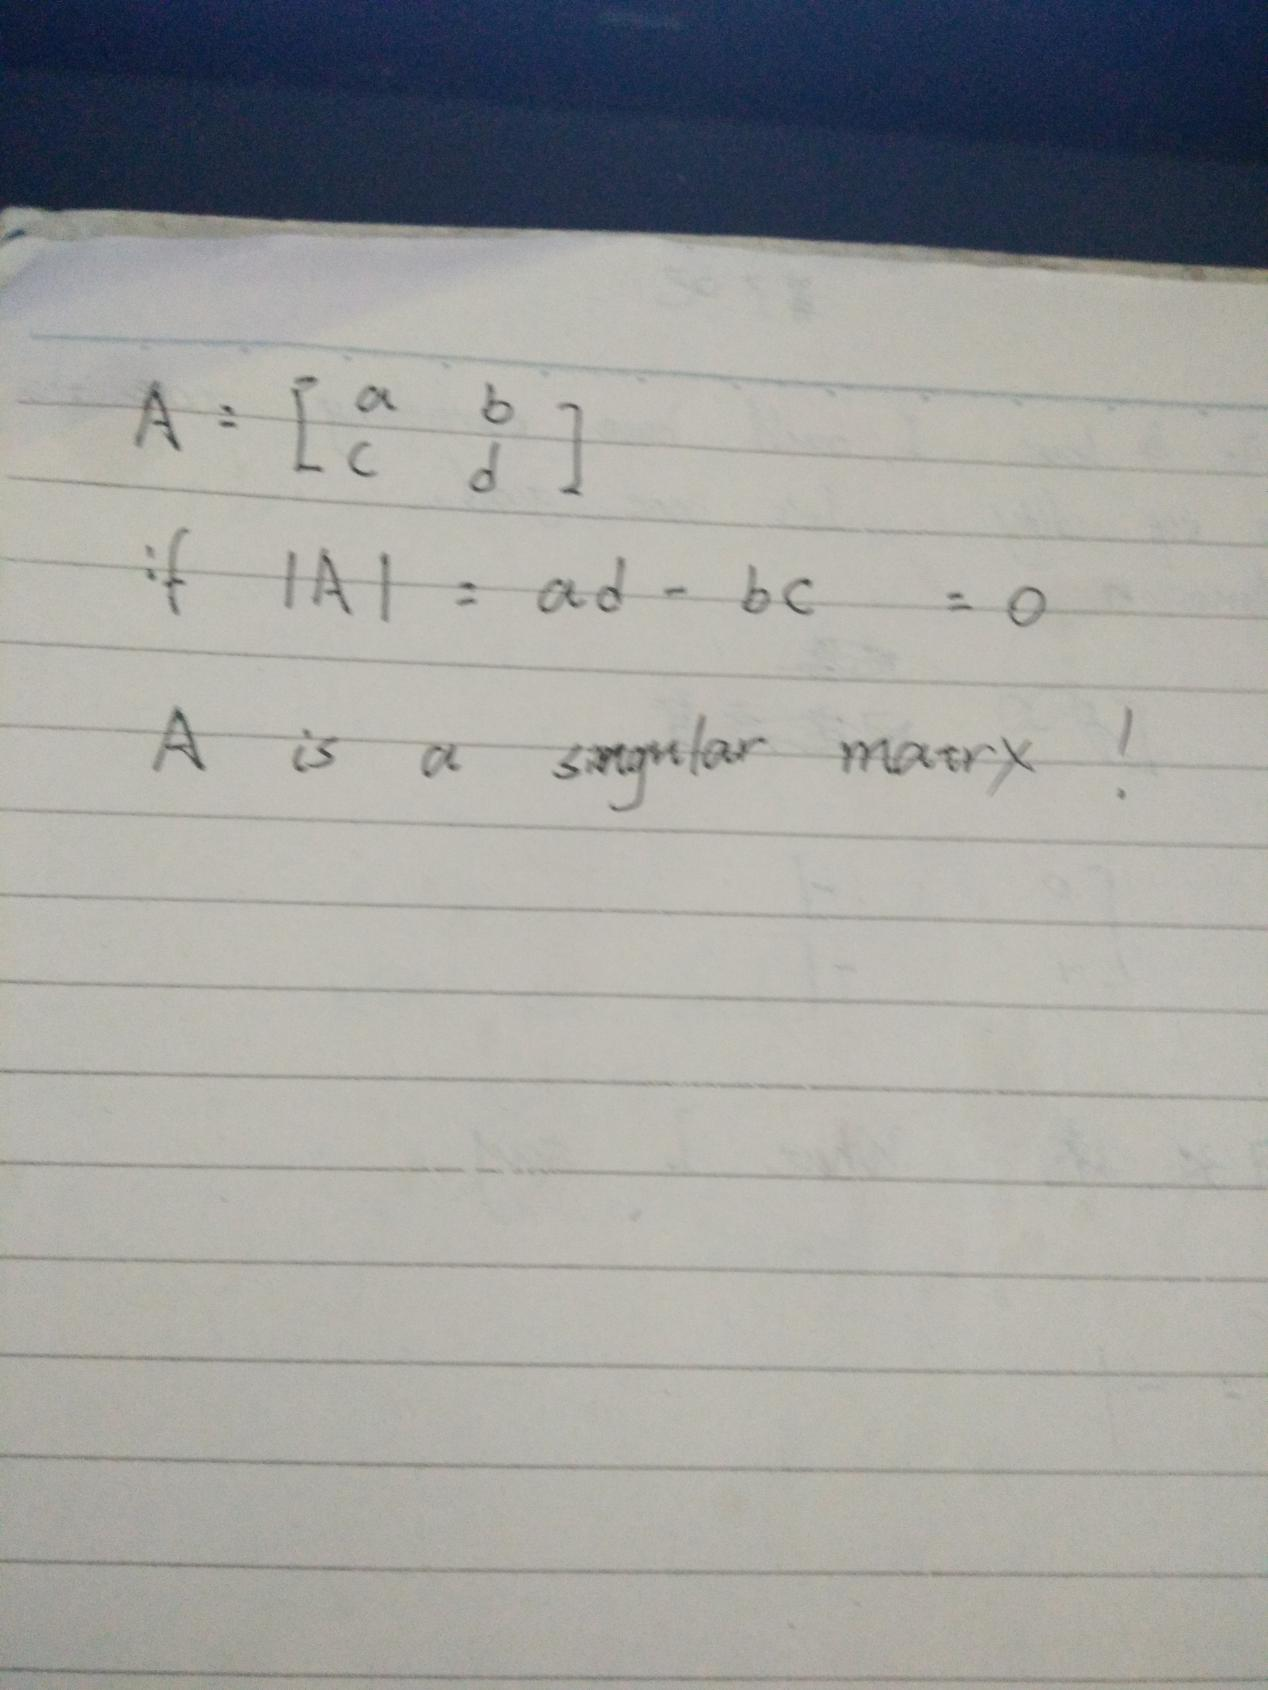 A = [ a b
c d ]
if |A| = ad - bc = 0
A is a singular matrx !